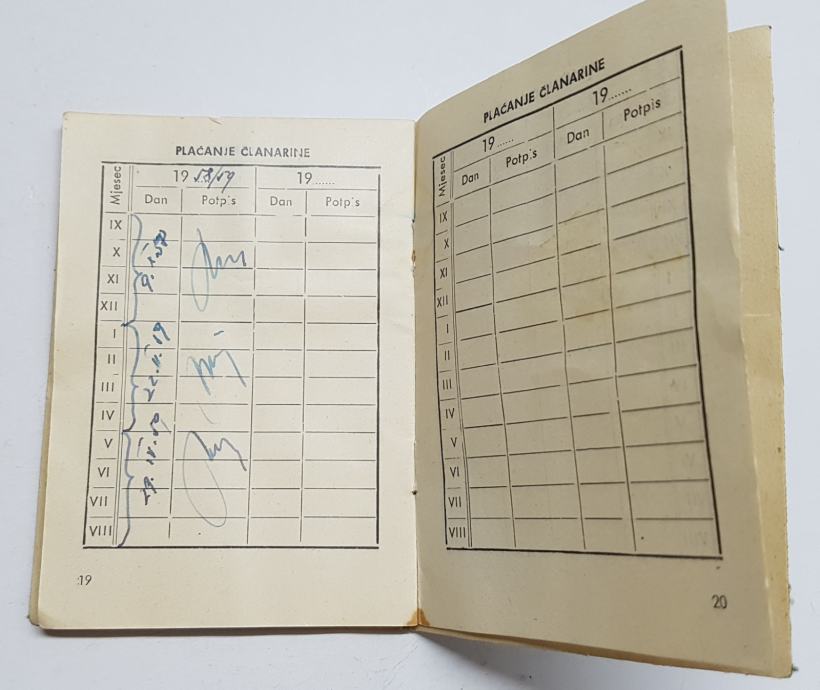 PLAĆANJE ČLANARINE
Mjesec 19 58/59 19.......
Dan Potpis Dan Potpis
IX
X
XI
XII
I
II
III
IV
V
VI
VII
VIII
19
PLAĆANJE ČLANARINE
Mjesec 19...... 19.......
Dan Potpis Dan Potpis
IX
X
XI
XII
I
II
III
IV
V
VI
VII
VIII
20